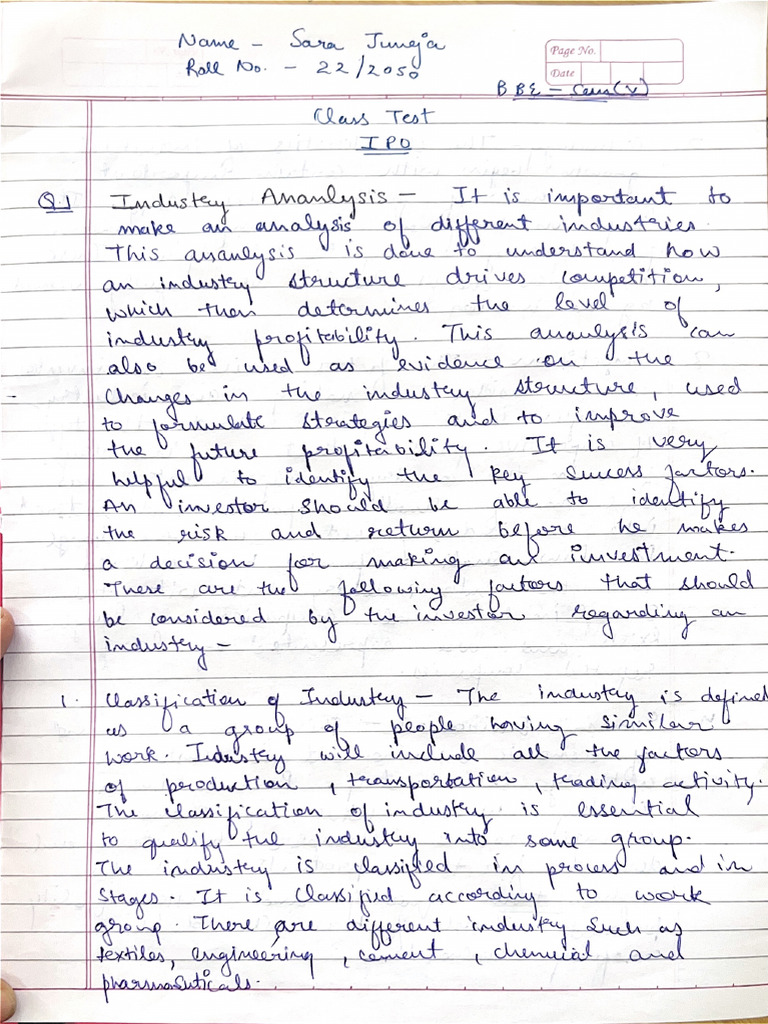 Name - Sara Juneja
Roll No. - 22/2050
Page No.
Date
BBE - Sem(V)
Class Test
IPO
Q.1 Industry Ananlysis - It is important to
make an analysis of different industries.
This ananlysis is done to understand how
an industry structure drives competition,
which then determines the level of
industry profitability. This ananlysis can
also be used as evidence on the
changes in the industry structure, used
to formulate strategies and to improve
the future profitability. It is very
helpful to identify the key success factors.
An investor should be able to identify
the risk and return before he makes
a decision for making an investment.
There are the following factors that should
be considered by the investor regarding an
industry -
1. Classification of Industry - The industry is defined
as a group of people having similar
work. Industry will include all the factors
of production, transportation, trading activity.
The classification of industry is essential
to qualify the industry into same group.
The industry is classified in process and in
stages. It is classified according to work
group. There are different industry such as
textiles, engineering, cement, chemical and
pharmaceuticals.